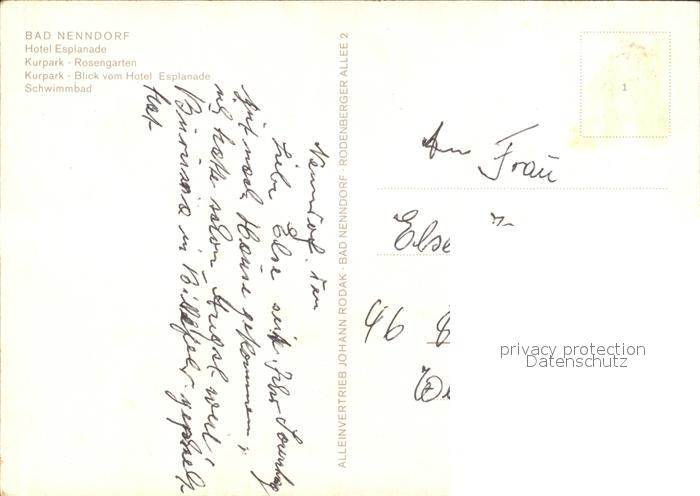 BAD NENNDORF
Hotel Esplanade
Kurpark - Rosengarten
Kurpark - Blick vom Hotel Esplanade
Schwimmbad
Nenndorf. den
Liebe Else seit Ihr Sonntag
gut nach Hause gekommen,
hatte schon Angst weil
in Bielefeld
hat
ALLEINVERTRIEB JOHANN RODAK · BAD NENNDORF · RODENBERGER ALLEE 2
1
An Frau
Else
46
privacy protection
Datenschutz